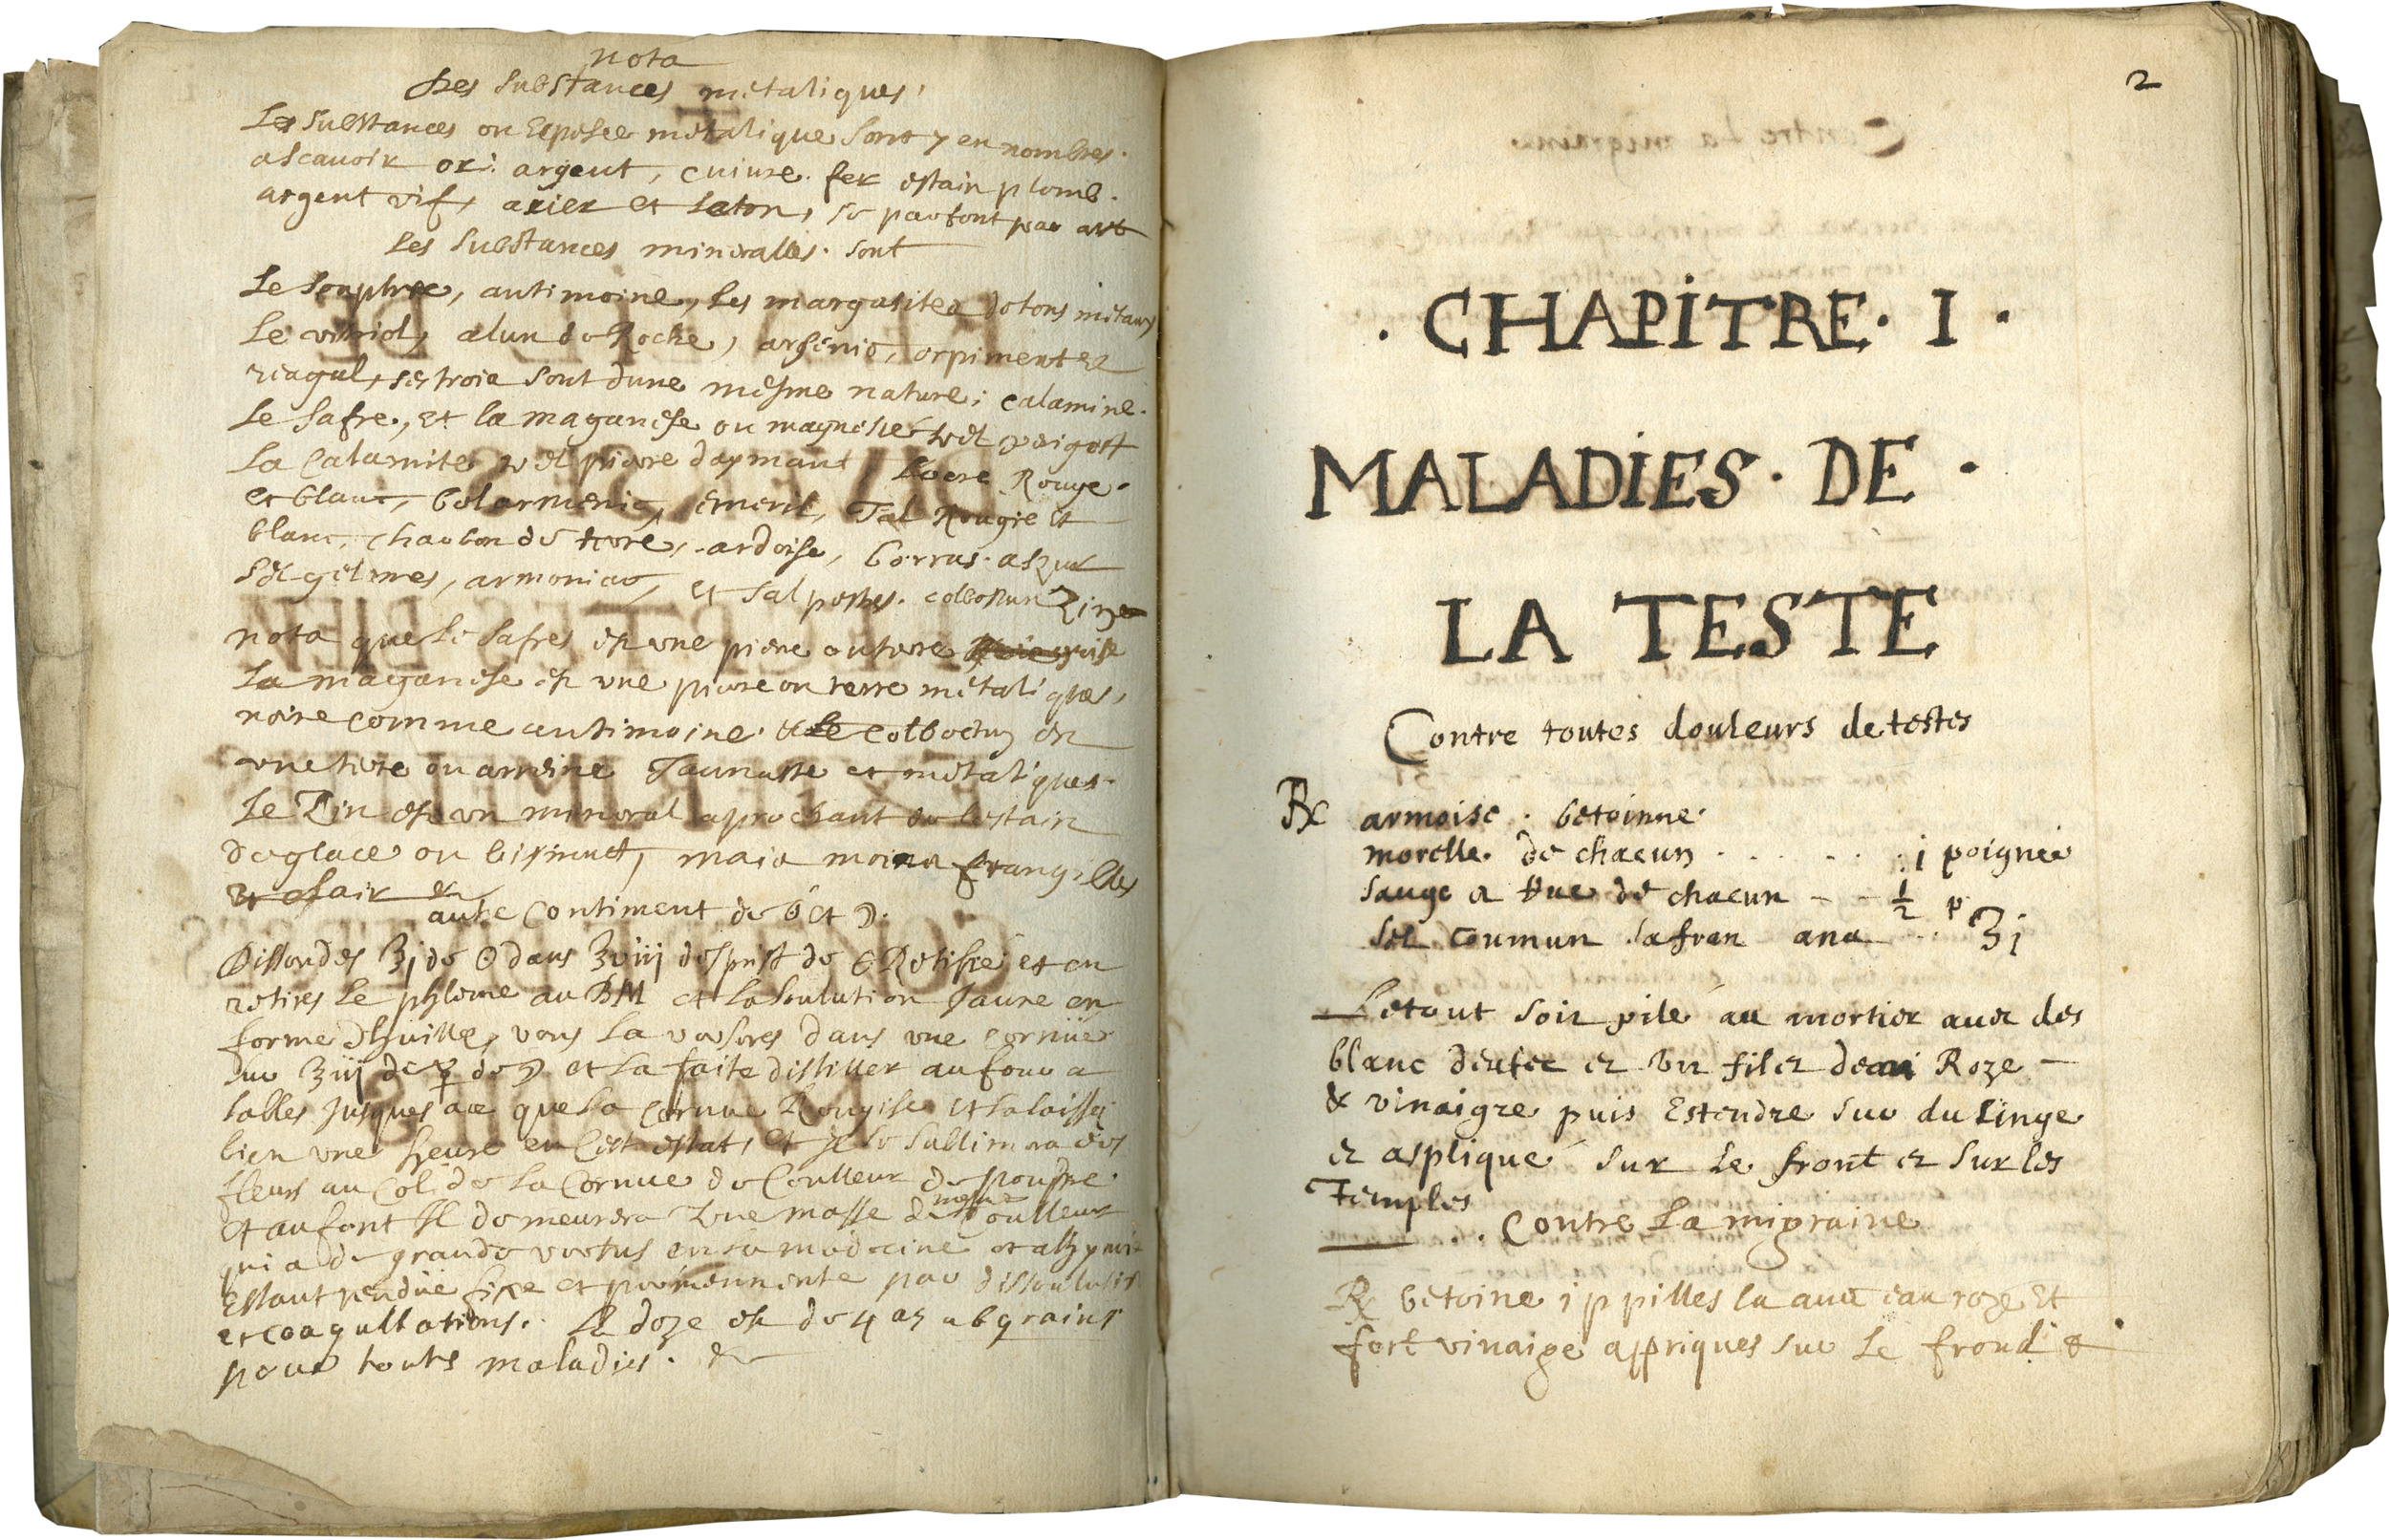 nota
Des substances metaliques,
Les substances ou Espesce metalique sont 7 en nombres.
ascauoir or: argent, cuiure. fer estain plomb.
argent vif, arier et Laton, se pau font par art
Les substances mineralles. sont
Le souphre, antimoine, Les margasites de tous metaux
Le vitriol, alun de Roche, arsenic, orpiment et
reagal, ses trois sont dune mesme nature; calamine.
Le Safre, et la maganese ou magnesie
La Calamite pierre daymant Rouge.
et blanc, bolarmenic, emeril, Tal Rougie et
blanc, charbon de terre, ardoise, borras. aszur
Sel gelmes, armoniac, et sal petres. Zin
nota que Le Safres est une piere ou terre grise
La maganese est une pierre ou terre metaliques,
noire comme antimoine. &
une terre ou Jaunastre et metaliques.
Le Zin est un mineral aprochant de Lestain
de glace ou bismut, mais moins frangilles
et &
autre Contiment de et ☽.
Dissoudes ʒj de ☉ dans desprit de Retifie et en
retires Le phleme au BM et La soulution Jaune en
forme dhuille, vous La verseres dans une cornue
suv de ☿ de ☽ et La faite distiller au four a
sables Jusques ace que La cornue Rougise et La laisse
bien une heure en cest estat, et Il se sublimera des
fleurs au Col de La Cornue de Coulleur de poupre
et au font Il demeurera une masse de mesme Coulleur
qui a de grande vertus en La medecine et alkymie
Estant rendue fixe et permennente par dissoulution
et coagullations. La doze est de 4 as a 6 grains
pour touts maladies. &
2
. CHAPITRE . I .
MALADIES . DE .
LA TESTE
Contre toutes douleurs de testes
℞ armoise . betoinne.
morelle. de chacun . . . . . : j poignée
sauge & Rue de chacun - - ½ p
sel coumun safran ana - .. ʒj
Le tout soit pilé au mortier auec des
blanc deufec et un filet deau Roze -
& vinaigre puis Estendre suv du Linge
et asplique sur Le front et sur les
Temples
. . Contre La migraine
℞ betoine j p pilles La auec eau roze et
fort vinaige appriques suv Le froud &